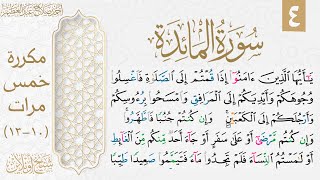 ٤
سورة المائدة
أحمد صلاح عبد العظيم
مكررة
خمس
مرات
(١٠-١٣)
يَٰٓأَيُّهَا الَّذِينَ ءَامَنُوٓا۟ إِذَا قُمْتُمْ إِلَى الصَّلَوٰةِ فَاغْسِلُوا۟
وُجُوهَكُمْ وَأَيْدِيَكُمْ إِلَى الْمَرَافِقِ وَامْسَحُوا۟ بِرُءُوسِكُمْ
وَأَرْجُلَكُمْ إِلَى الْكَعْبَيْنِ ۚ وَإِن كُنتُمْ جُنُبًا فَاطَّهَّرُوا۟ ۚ
وَإِن كُنتُم مَّرْضَىٰٓ أَوْ عَلَىٰ سَفَرٍ أَوْ جَآءَ أَحَدٌ مِّنكُم مِّنَ الْغَآئِطِ
أَوْ لَٰمَسْتُمُ النِّسَآءَ فَلَمْ تَجِدُوا۟ مَآءً فَتَيَمَّمُوا۟ صَعِيدًا طَيِّبًا